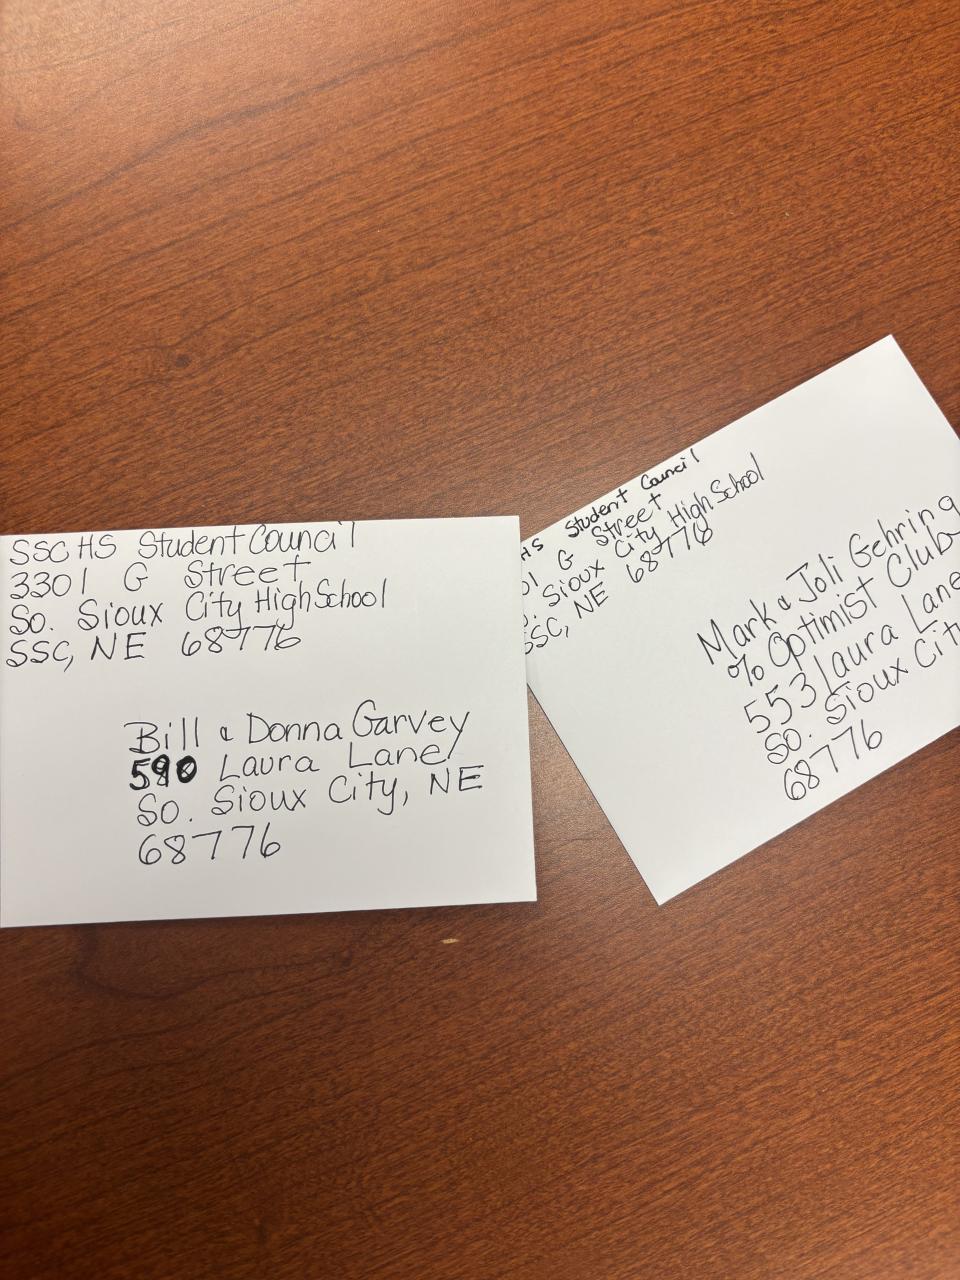 SSCHS Student Council
3301 G Street
So. Sioux City High School
SSC, NE 68776
Bill & Donna Garvey
590 Laura Lane
So. Sioux City, NE
68776
HS Student Council
01 G Street
. Sioux City High School
SSC, NE 68776
Mark & Joli Gehring
% Optimist Club
553 Laura Lane
So. Sioux City
68776